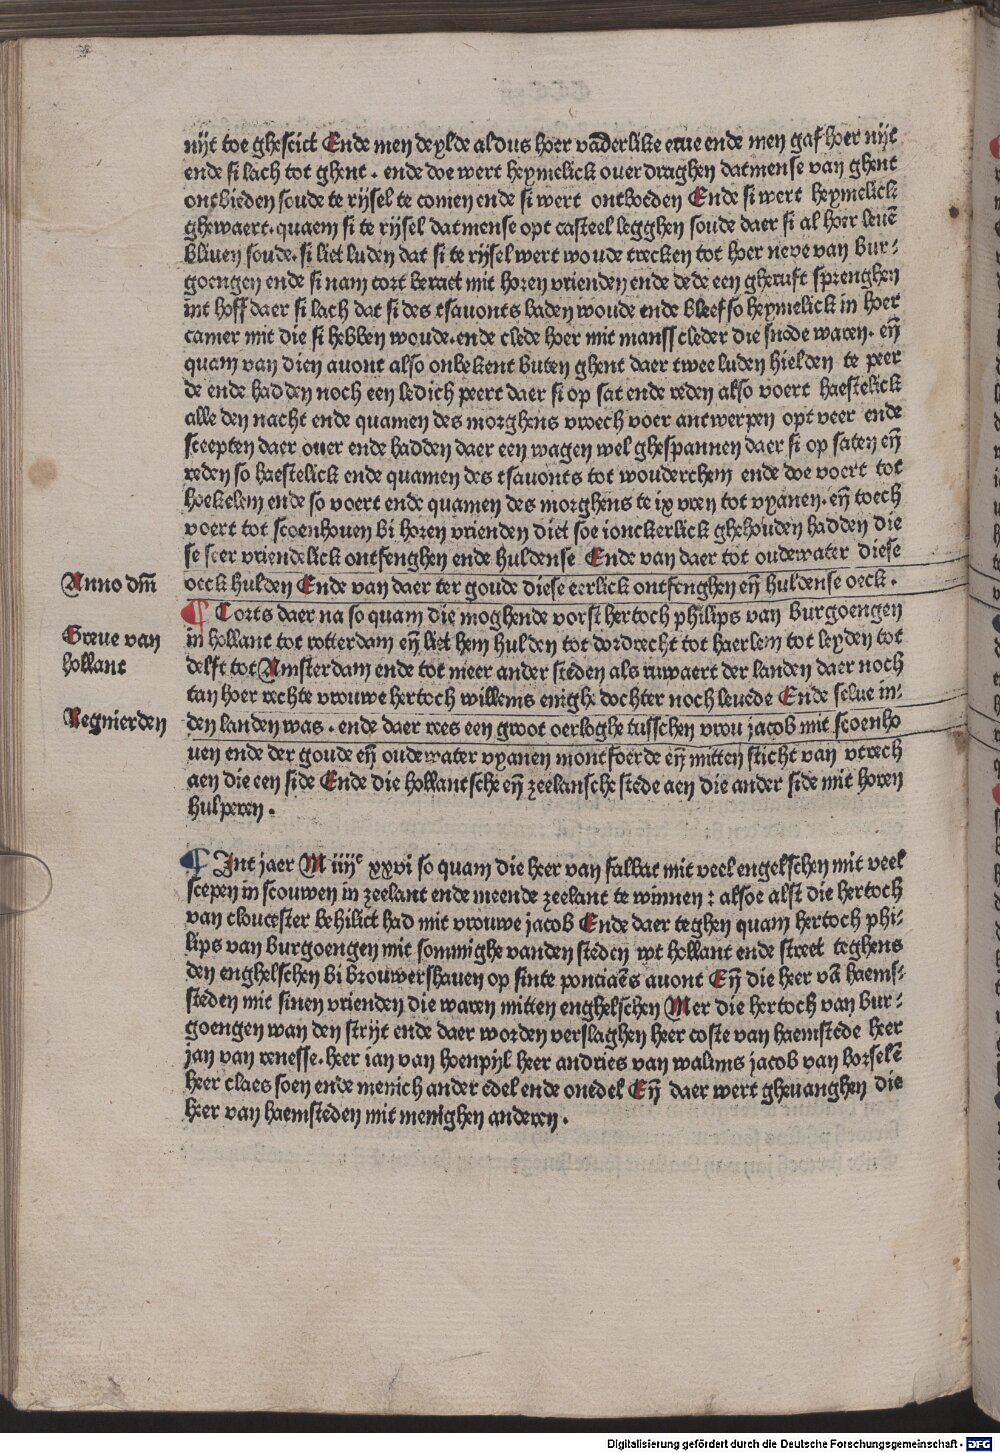 nijt toe ghescict Ende men deylde aldus hoer vāderlike erue ende men gaf hoer nijt
ende si lach tot ghent . ende doe wert heymelick ouerdraghen datmense van ghent
ontbieden soude te rijsel te comen ende si wert ontboeden Ende si wert heymelick
ghewaert . quaem si te rijsel datmense opt casteel legghen soude daer si al hoer leuē
bliuen soude . si liet luden dat si te rijsel wert woude trecken tot hoer neve van bur-
goengen ende si nam cort beraet mit horen vrienden ende dede een gheruft sprenghen
int hoff daer si lach dat si des tsauonts baden woude ende bleef so heymelick in hoer
camer mit die si hebben woude . ende clede hoer mit manss cleder die snode waren . eñ
quam van dien auont also onbekent buten ghent daer twee luden hielden te peer
de ende hadden noch een ledich peert daer si op sat ende reden also voert haestelick
alle den nacht ende quamen des morghens vroech voer antwerpen opt veer ende
sceepten daer ouer ende hadden daer een wagen wel ghespannen daer si op saten eñ
reden so haestelick ende quamen des tsauonts tot wouderchem ende doe voert tot
hoekelem ende so voert ende quamen des morghens te ix vren tot vyanen . eñ toech
voert tot scoenhouen bi horen vrienden diet soe ionckerlick ghehouden hadden die
se seer vriendelick ontfenghen ende huldense Ende van daer tot oudewater diese
Anno dm̄
oeck hulden Ende van daer ter goude diese eerlick ontfenghen eñ huldense oeck .
¶ Corts daer na so quam die moghende vorst hertoch philips van burgoengen
Greue van
in hollant tot rotterdam eñ liet hem hulden tot dordrecht tot haerlem tot leyden tot
hollant
delft tot Amsterdam ende tot meer ander steden als ruwaert der landen daer noch
tan hoer rechte vrouwe hertoch willems enighe dochter noch leuede Ende selue in-
Regnierden
den landen was . ende daer rees een groot oerloghe tusschen vrou jacob mit scoenho
uen ende der goude eñ oudewater vyanen montfoerde eñ mitten sticht van vtrech
aen die een side Ende die hollantsche eñ zeelansche stede aen die ander side mit horen
hulperen .
¶ Int jaer M iiijᶜ xxvi so quam die heer van falwat mit veel engelschen mit veel
scepen in scouwen in zeelant ende meende zeelant te winnen : alsoe alst die hertoch
van cloucester behilict had mit vrouwe jacob Ende daer teghen quam hertoch phi-
lips van burgoengen mit sommighe vanden steden wt hollant ende street teghens
den enghelschen bi brouwershauen op sinte ponciaēs auont Eñ die heer vā haems-
steden mit sinen vrienden die waren mitten enghelschen Mer die hertoch van bur-
goengen wan den strijt ende daer worden verslaghen heer coste van haemstede heer
jan van renesse . heer ian van hoenpijl heer andries van walims jacob van borselē
heer claes soen ende menich ander edel ende onedel Eñ daer wert gheuanghen die
heer van haemsteden mit menighen anderen .
Digitalisierung gefördert durch die Deutsche Forschungsgemeinschaft - DFG